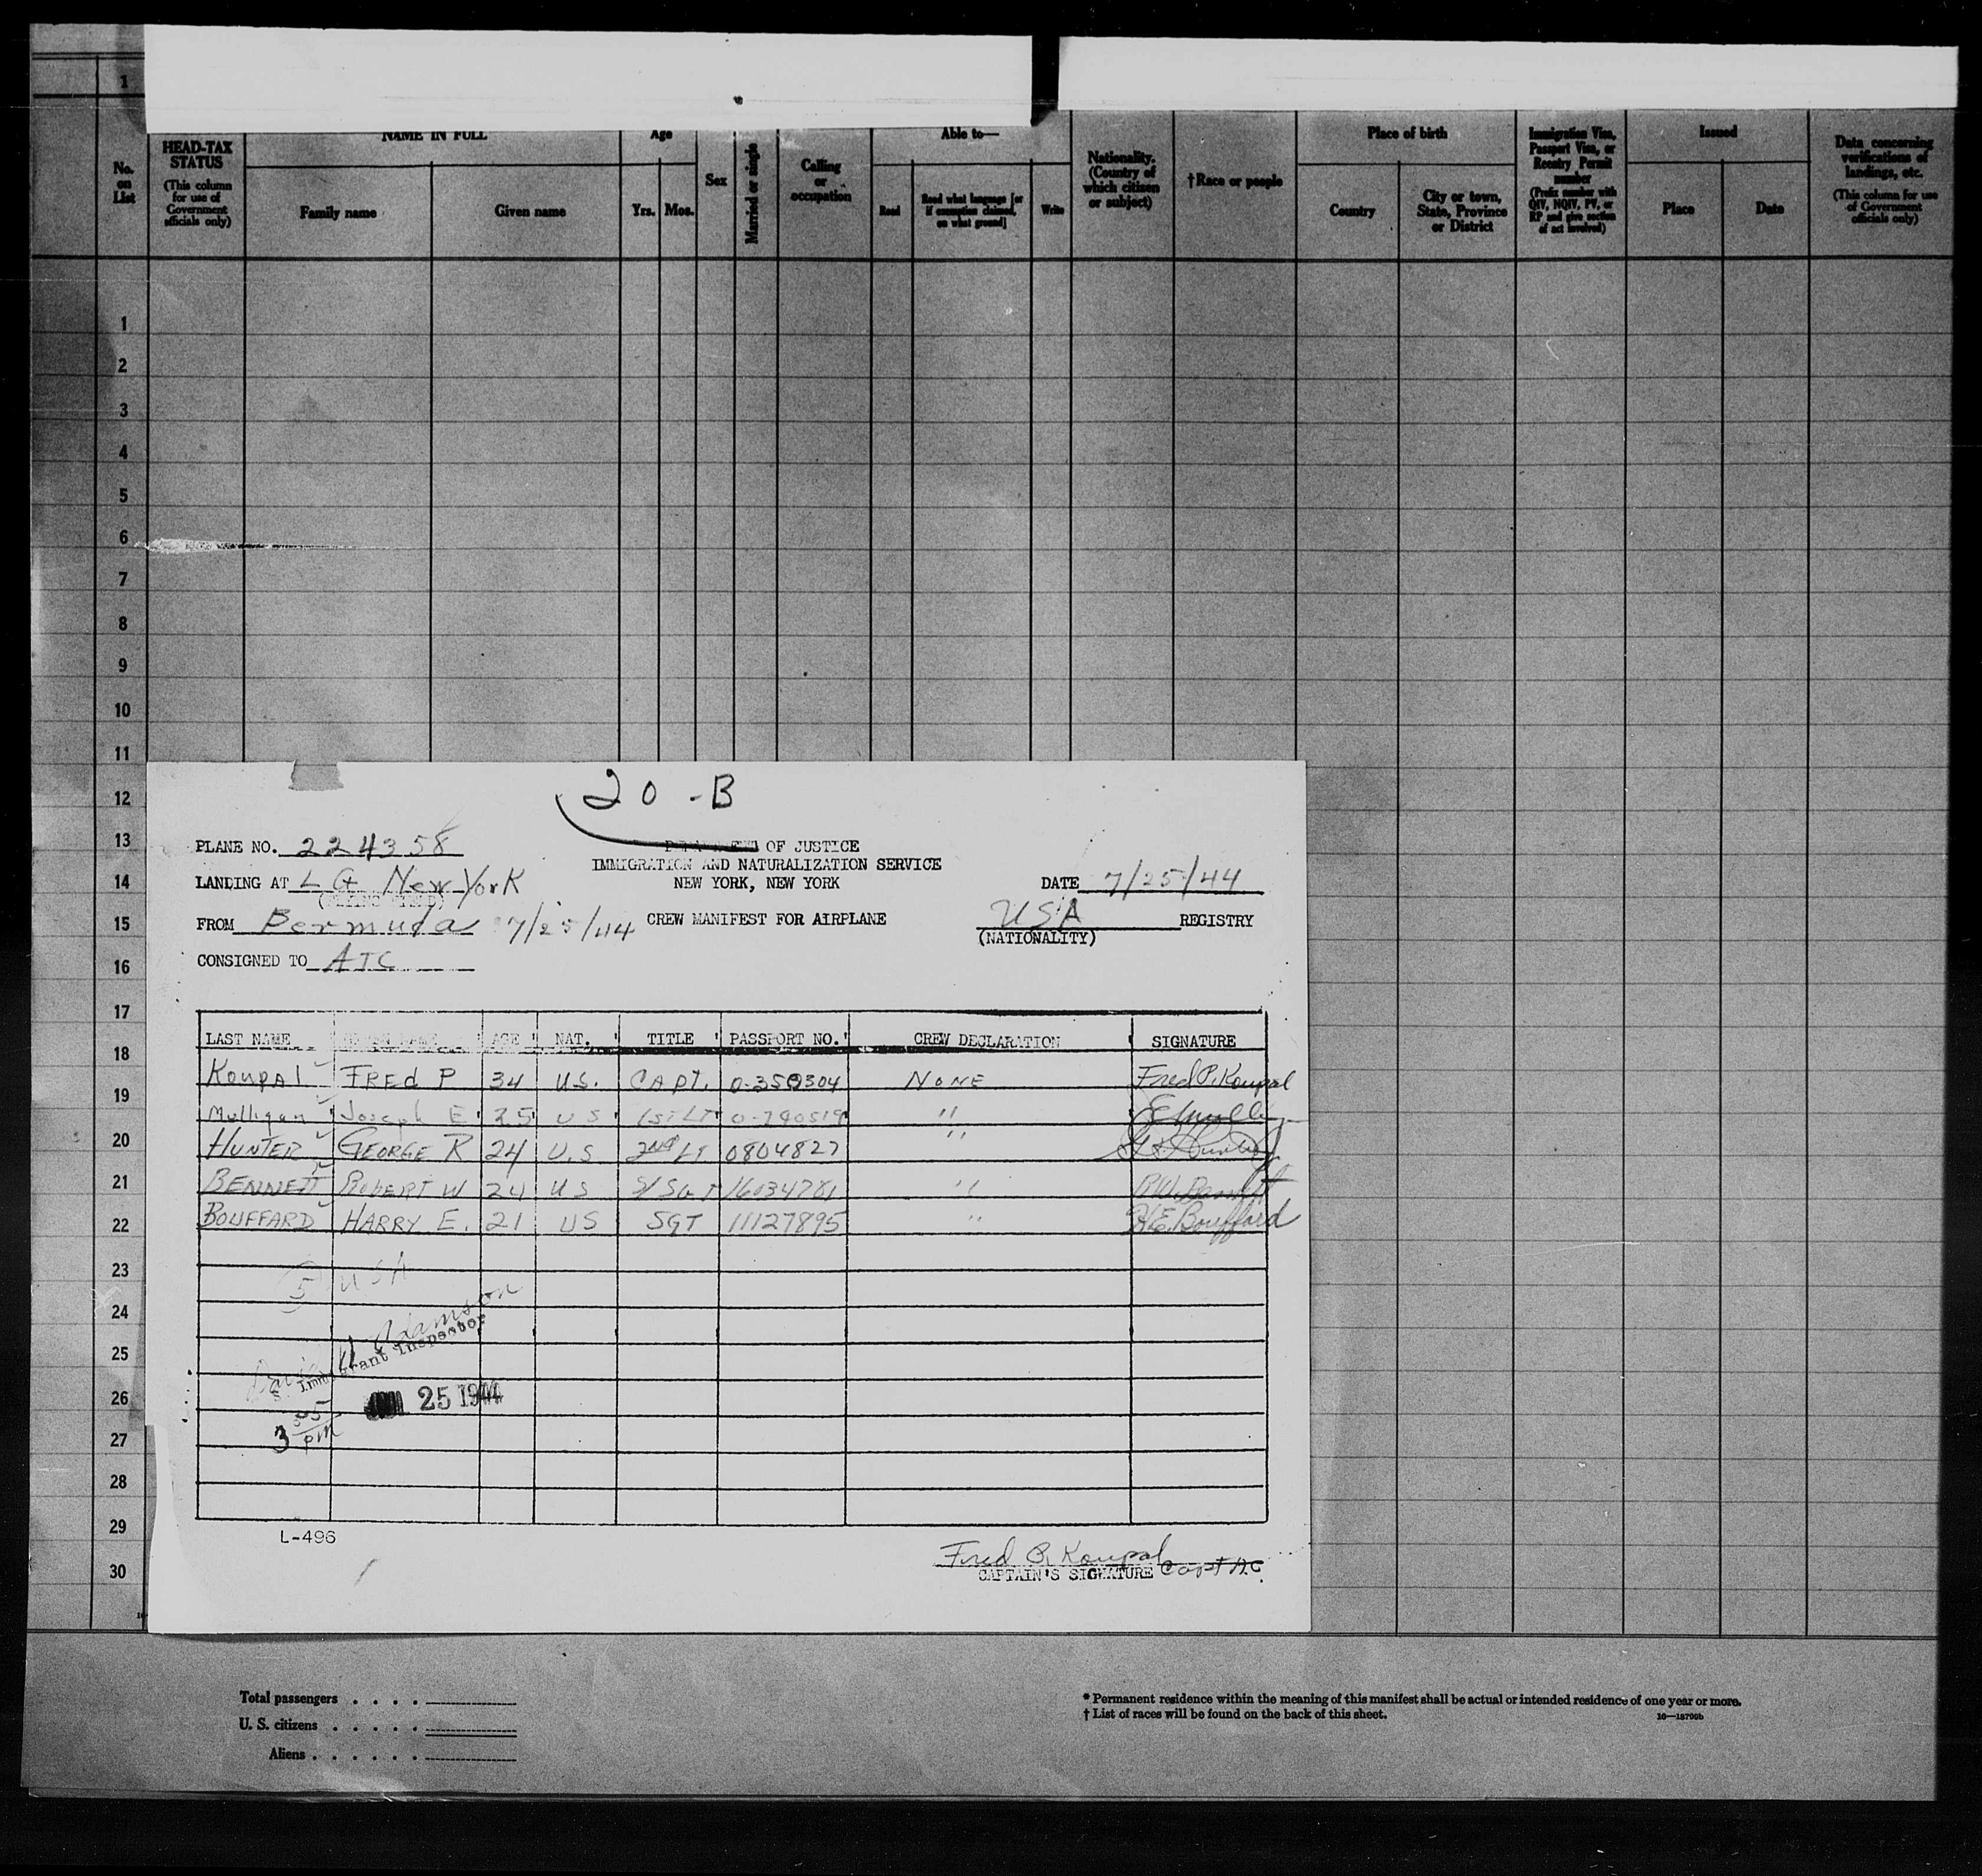 1
NAME IN FULL Age Able to— Place of birth Issued
No. on List
HEAD-TAX STATUS
(This column for use of Government officials only)
Family name Given name Yrs. Mos. Sex Married or single
Calling or occupation
Read Read what language [or if exemption claimed, on what ground] Write
Nationality. (Country of which citizen or subject)
†Race or people
Country City or town, State, Province or District
Immigration Visa, Passport Visa, or Reentry Permit number
(Prefix number with QIV, NQIV, PV, or RP and give section of act involved)
Place Date
Data concerning verifications of landings, etc.
(This column for use of Government officials only)
1
2
3
4
5
6
7
8
9
10
11
12
13
14
15
16
17
18
19
20
21
22
23
24
25
26
27
28
29
30
20-B
PLANE NO. 224358
OF JUSTICE
IMMIGRATION AND NATURALIZATION SERVICE
LANDING AT LG New York
NEW YORK, NEW YORK
DATE 7/25/44
FROM Bermuda 7/25/44 CREW MANIFEST FOR AIRPLANE
USA REGISTRY
(NATIONALITY)
CONSIGNED TO ATC
LAST NAME AGE NAT. TITLE PASSPORT NO. CREW DECLARATION SIGNATURE
Koupal FREd P 34 U.S. CAPT. 0-350304 NONE Fred P. Koupal
Mulligan Joseph E 25 US 1ST LT 0-740519 "
HUNTER GEORGE R 24 U.S 2nd LT 0804827 "
BENNETT ROBERT W 24 US S/SGT 16034781 " R.W. Bennett
BOUFFARD HARRY E. 21 US SGT 11127895 " H.E. Bouffard
5 USA
Adamson
Immigrant Inspector
25 1944
3 pm
L-496
Fred P. Koupal
CAPTAIN'S SIGNATURE Capt AC
Total passengers . . . .
U. S. citizens . . . . .
Aliens . . . . . .
* Permanent residence within the meaning of this manifest shall be actual or intended residence of one year or more.
† List of races will be found on the back of this sheet.